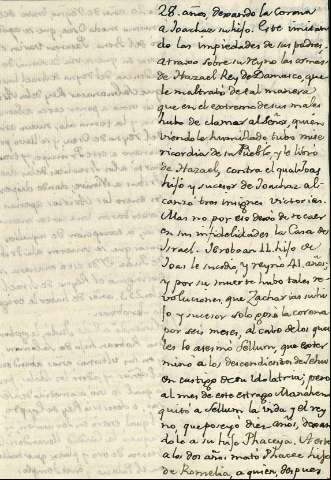 28. años, dexando la Corona
a Joachaz su hijo. Este imitan
do las impiedades de sus padres,
atraxo sobre su Reyno las armas
de Hazael Rey de Damasco, que
le maltratò de tal manera
que en el extremo de sus males
hubo de clamar al Señor, quien
viendole humillado, tubo mise
ricordia de su Pueblo, y le librò
de Hazael, contra el qual Joas
hijo y sucesor de Joachaz al
canzo tres insignes victorias.
Mas no por eso dexò de recaer
en sus infidelidades la Casa de
Israel. Jeroboan II. hijo de
Joas le sucediò, y reynò 41. años;
y por su muerte hubo tales re
voluciones, que Zacharias su hi
jo y sucesor solo gozò la corona
por seis meses, al cabo de los qua
les lo asesinò Sellum, que exter
minò a los descendientes de Jehu
en castigo de su Idolatria; pero
al mes de este estrago Manahem
quitò a Sellum la vida, y el rey
no, que poseyò diez años, dexan
dolo a su hijo Phaceya. A este
a los dos años matò Phacee hijo
de Romelia, a quien, despues